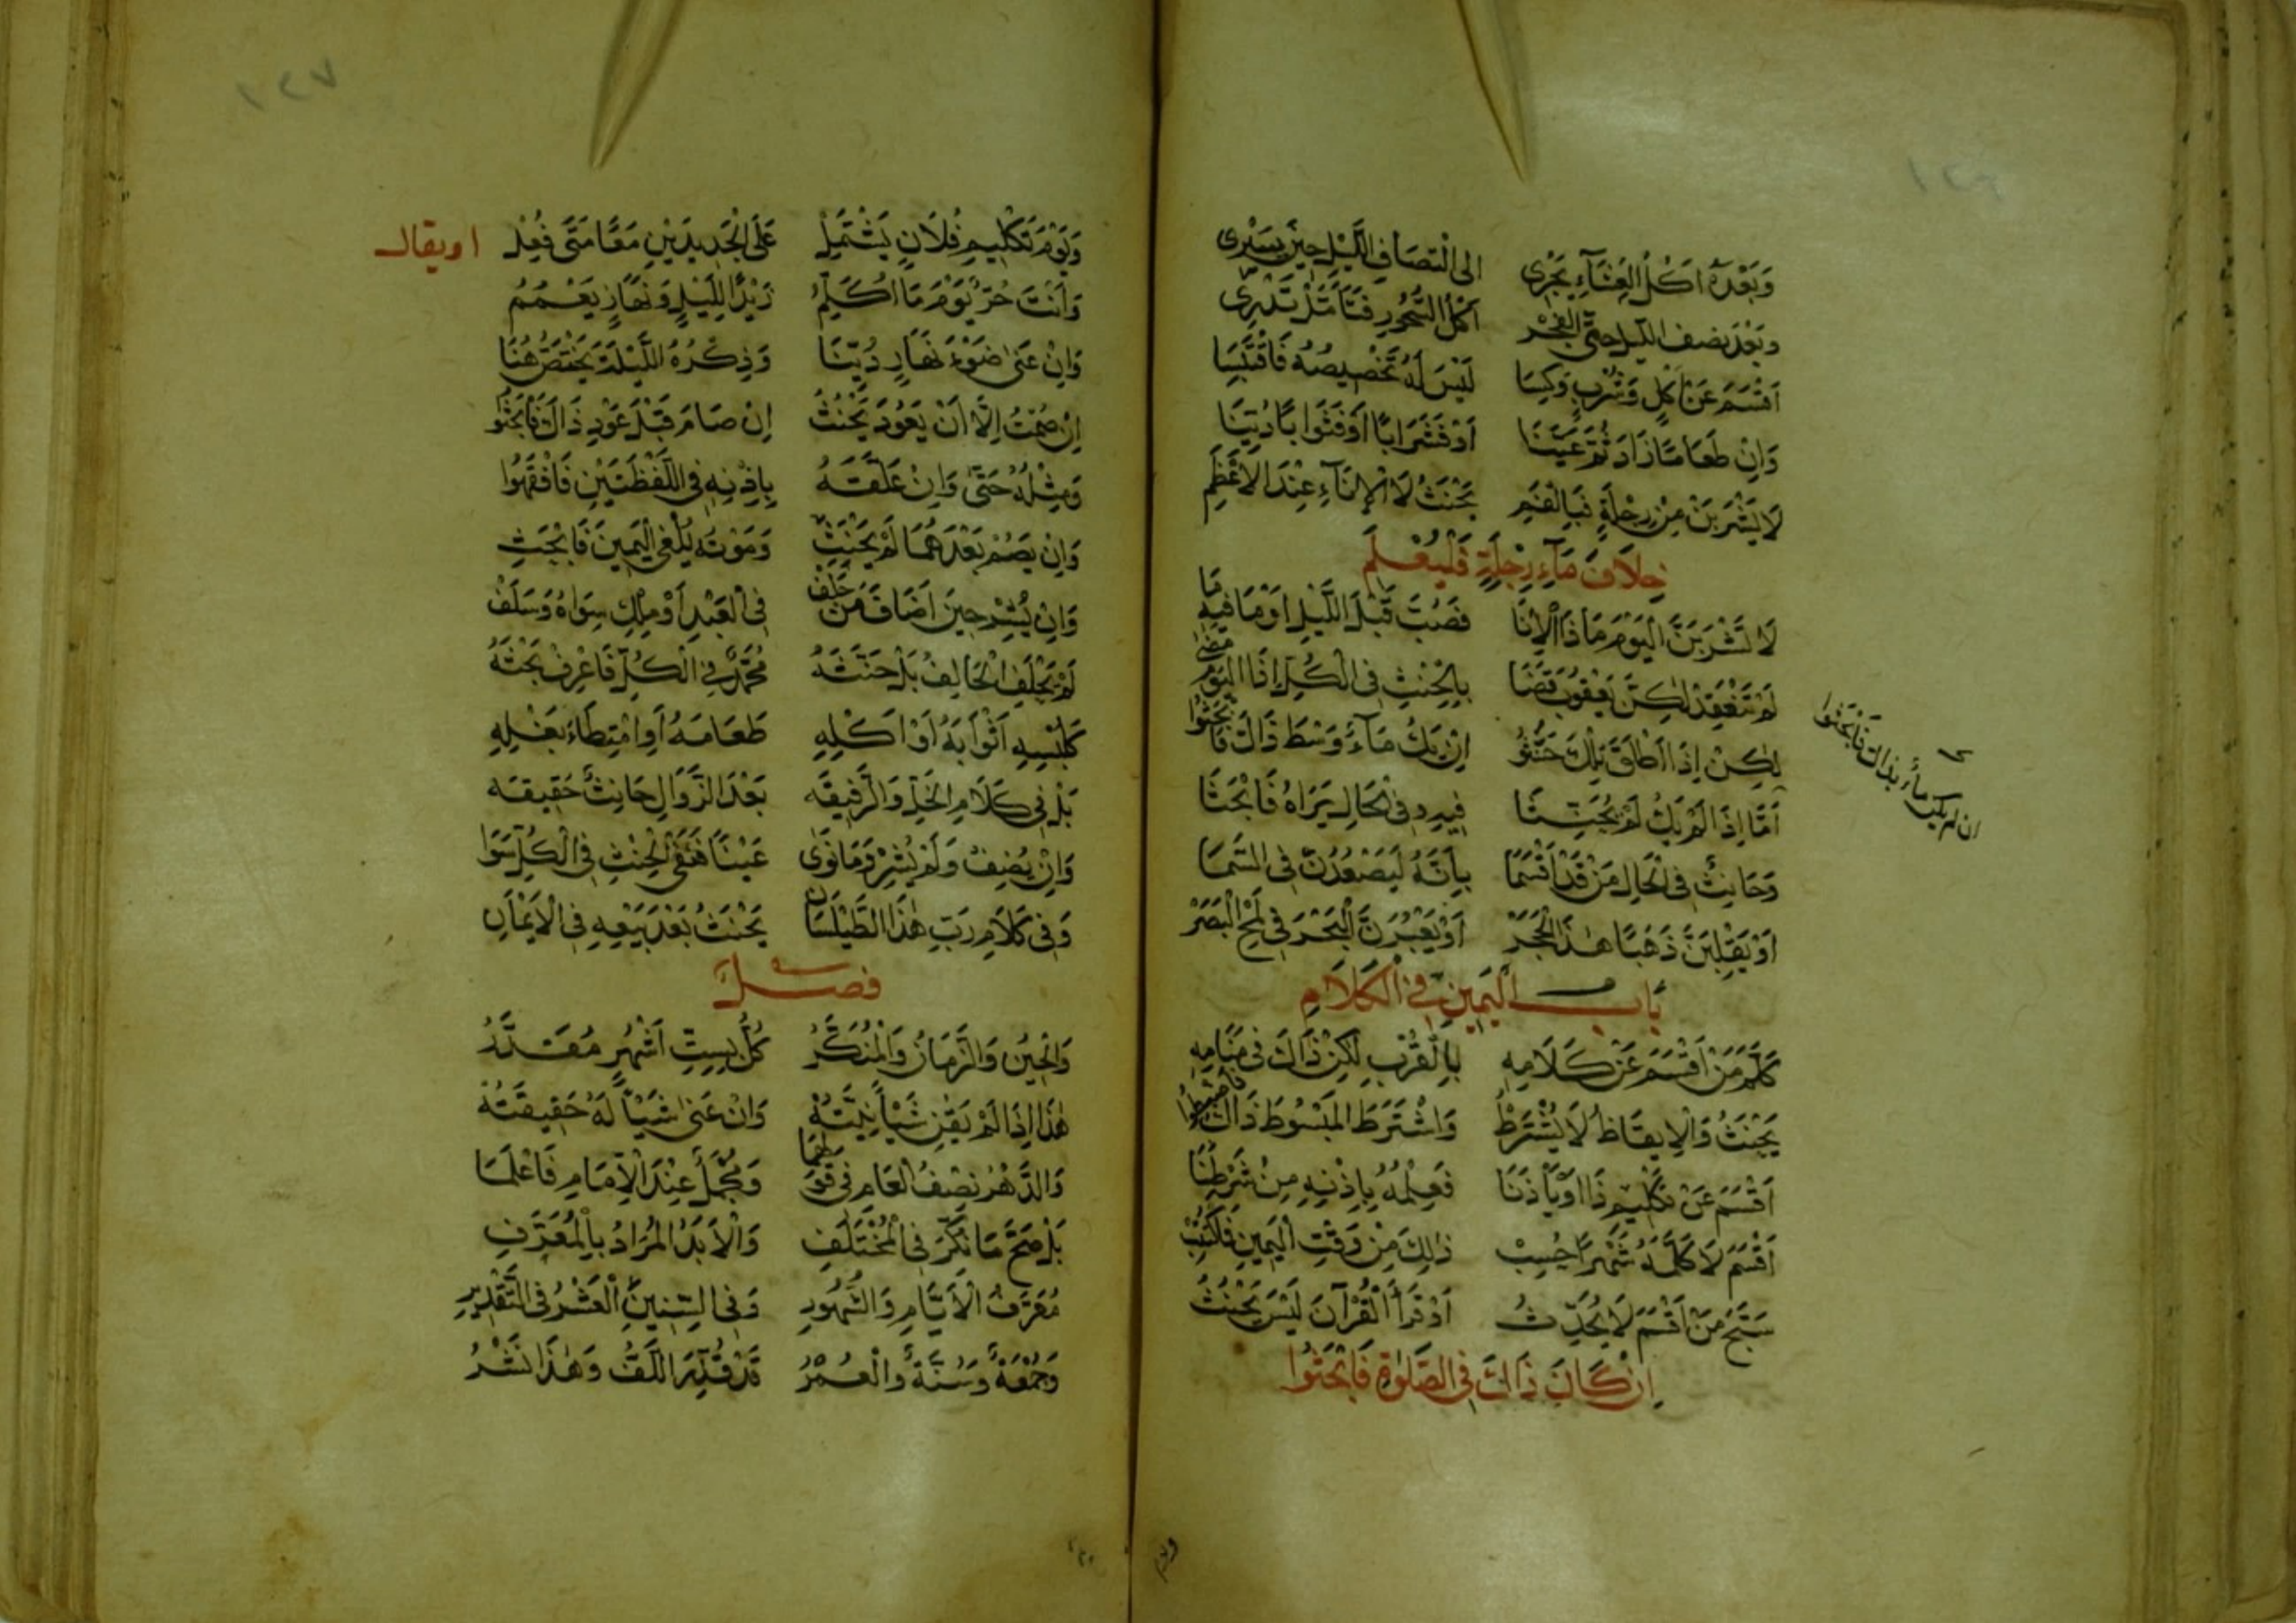 ١٢٦
وَبَعْدَهُ اَكْلُ العِشَآءِ يَجْرِى الى انْتِصَافِ اللَّيْلِ حِينَ يَسْرِى
وبَعْدَ نصف الليل حتَّى الفَجْر اَكْلُ السُّحُورِ فَتَأَمَّلْ تَدْرِى
اَقْسَمَ عَنْ اَكْلٍ وَشُرْبٍ وَكِسَا لَيْسَ لَهُ تَخْصِيصُهُ فَاقْتَبِسَا
وَاِنْ طَعَامًا زَادَ ثُمَّ عَيَّنَا اَوْ فَشَرَابًا اَوْ فَثَوْابًا دُيِّنَا
لَا يَشْرَبَنْ مِنْ دِجْلَةٍ فَبِالفَمِ يَحْنَثُ لَا الْاِنَآءِ عِنْدَ الاَعْظَمِ
خِلَافَ مَآءِ دِجْلَةٍ فَلْيُعْلَمِ
لَا تَشْرَبَنَّ الْيَوْمَ مَا ذَا الْاِنَا فَصُبَّ قَبْلَ اللَّيْلِ اَوْ مَا فيهِ مَا
لَمْ تَنْعَقِدْ لٰكِنَّ يَعْقُوبُ قَضَا بِالْحِنْثِ فِى الْكُلِّ اِذَا الْيَوْمُ مَضٰى
لٰكِنْ اِذَا اَطْلَقَ تِلْكَ حَنَّثُوا اِنْ يَكُ مَآءٌ وَسْطَ ذَاكَ فَابْحَثُوا
اَمَّا اِذَا لَمْ يَكُ لَمْ يُحَنِّثَا فِيهِ وفِى الْحَالِ يَرَاهُ فَابْحَثَا
وَحَانِثٌ فِى الْحَالِ مَنْ قَدْ اَقْسَمَا بِاَنَّهُ لَيَصْعَدَنَّ فِى السَّمَا
اَوْ يَقْلِبَنَّ ذَهَبًا هٰذَا الْحَجَرْ اَوْ يَعْبُرَنَّ الْبَحْرَ فِى لَمْحِ الْبَصَرْ
ان لم يكن مآء بذاك فَابْحَثُوا
بَاب الْيَمِينِ فِى الْكَلَامِ
كَلَّمَ مَنْ اَقْسَمَ عَنْ كَلَامِهِ بِالْقُرْبِ لٰكِنْ ذَاكَ فِى مَنَامِهِ
يَحْنَثُ وَالْاِيقَاظُ لَا يُشْتَرَطُ وَاشْتَرَطَ المَبْسُوطُ ذَاكَ
اَقْسَمَ عَنْ تَكْلِيمِ ذَا اَوْ يَأْذَنَا فَعِلْمُهُ بِاِذْنِهِ مِنْ شَرْطِنَا
اَقْسَمَ لَا كَلَّمَهُ شَهْرًا حُسِبْ ذٰلِكَ مِنْ وَقْتِ الْيَمِينِ فَلْتُثِبْ
سَبَّحَ مَنْ اَقْسَمَ لَا يُحَدِّثُ اَوْ قَرَأَ الْقُرْآنَ لَيْسَ يَحْنَثُ
اِنْ كَانَ ذَاكَ فِى الصَّلٰوةِ فَابْحَثُوا
ويوم
١٢٧
وَيَوْمَ تَكْلِيمِ فُلَانٍ يَشْتَمِلْ عَلَى الْجَدِيدَيْنِ مَعًا مَتَى فُعِلْ
او يقال
وَاَنْتَ حُرٌّ يَوْمَ مَا اُكَلِّمُ زَيْدًا لِلَيْلٍ وَنَهَارٍ يَعْمُمُ
وَاِنْ عَنٰى ضَوْءَ نَهَارٍ دُيِّنَا وَذِكْرُهُ اللَّيْلَةَ يَخْتَصُّ هُنَا
اِنْ صُمْتُ اِلَّا اَنْ يَعُودَ يَحْنَثُ اِنْ صَامَ قَبْلَ عَوْدِ ذَاكَ فَابْحَثُوا
وَمِثْلُهُ حَتَّى وَاِنْ عَلَّقَهُ بِاِذْنِهِ فِى اللَّفْظَتَيْنِ فَافْقَهُوا
وَاِنْ يَصُمْ بَعْدَهُمَا لَمْ يَحْنَثِ وَمَوْتُه يُلْغِى الْيَمِينَ فَابْحَثِ
وَاِنْ يُشِرْ حِينَ اَضَافَ مَنْ حَلَفْ فِى الْعَبْدِ اَوْ مِلْكِ سِوَاهُ وَسَلَفْ
لَمْ يَحْلِفِ الْحَالِفُ بَلْ حَنَّثَهُ مُحَمَّدٌ فِى الْكُلِّ فَاعْرِفْ بَحْثَهُ
كَلُبْسِهِ اَثْوَابَهُ اَوْ اَكْلِهِ طَعَامَهُ اَوِ امْتِطَاءَ بَغْلِهِ
بَلْ فِى كَلَامِ الخِلِّ وَالرَّفِيقَه بَعْدَ الزَّوَالِ حَانِثٌ حَقِيقَه
وَاِنْ يُضِفْ وَلَمْ يُشِرْ وَمَا نَوٰى عَيْنًا فَنَفْىُ الْحِنْثِ فِى الْكُلِّ سَوَا
وَفِى كَلَامِ رَبِّ هٰذَا الطَّيْلَسَانْ يَحْنَثُ بَعْدَ بَيْعِهِ فِى الْاَيْمَانِ
فصل
وَالْحِينُ وَالزَّمَانُ وَالْمُنَكَّرُ كُلٌّ بِسِتِّ اَشْهُرٍ مُقَدَّرُ
هٰذَا اِذَا لَمْ يَقْنِ شَيْأً نِيَّتُهُ وَاِنْ عَنٰى شَيْأً لَهُ حَقِيقَتُهُ
وَالدَّهْرُ نِصْفُ الْعَامِ فِى قَوْلِهِمَا وَمُجْمَلٌ عِنْدَ الْاِمَامِ فَاعْلَمَا
بَلْ صَحَّ مَا نُكِّرَ فِى الْمُخْتَلَفِ وَالْاَبَدُ الْمُرَادُ بِالْمُعَرَّفِ
مُعَرَّفُ الْاَيَّامِ وَالشُّهُورِ وَفِى السِّنِينَ الْعَشْرُ فِى التَّقْدِيرِ
وَجُمْعَةٌ وَسَنَةٌ وَالْعُمْرُ قَدْ قُدِّرَ اللَّفُّ وَهٰذَا نَشْرُ